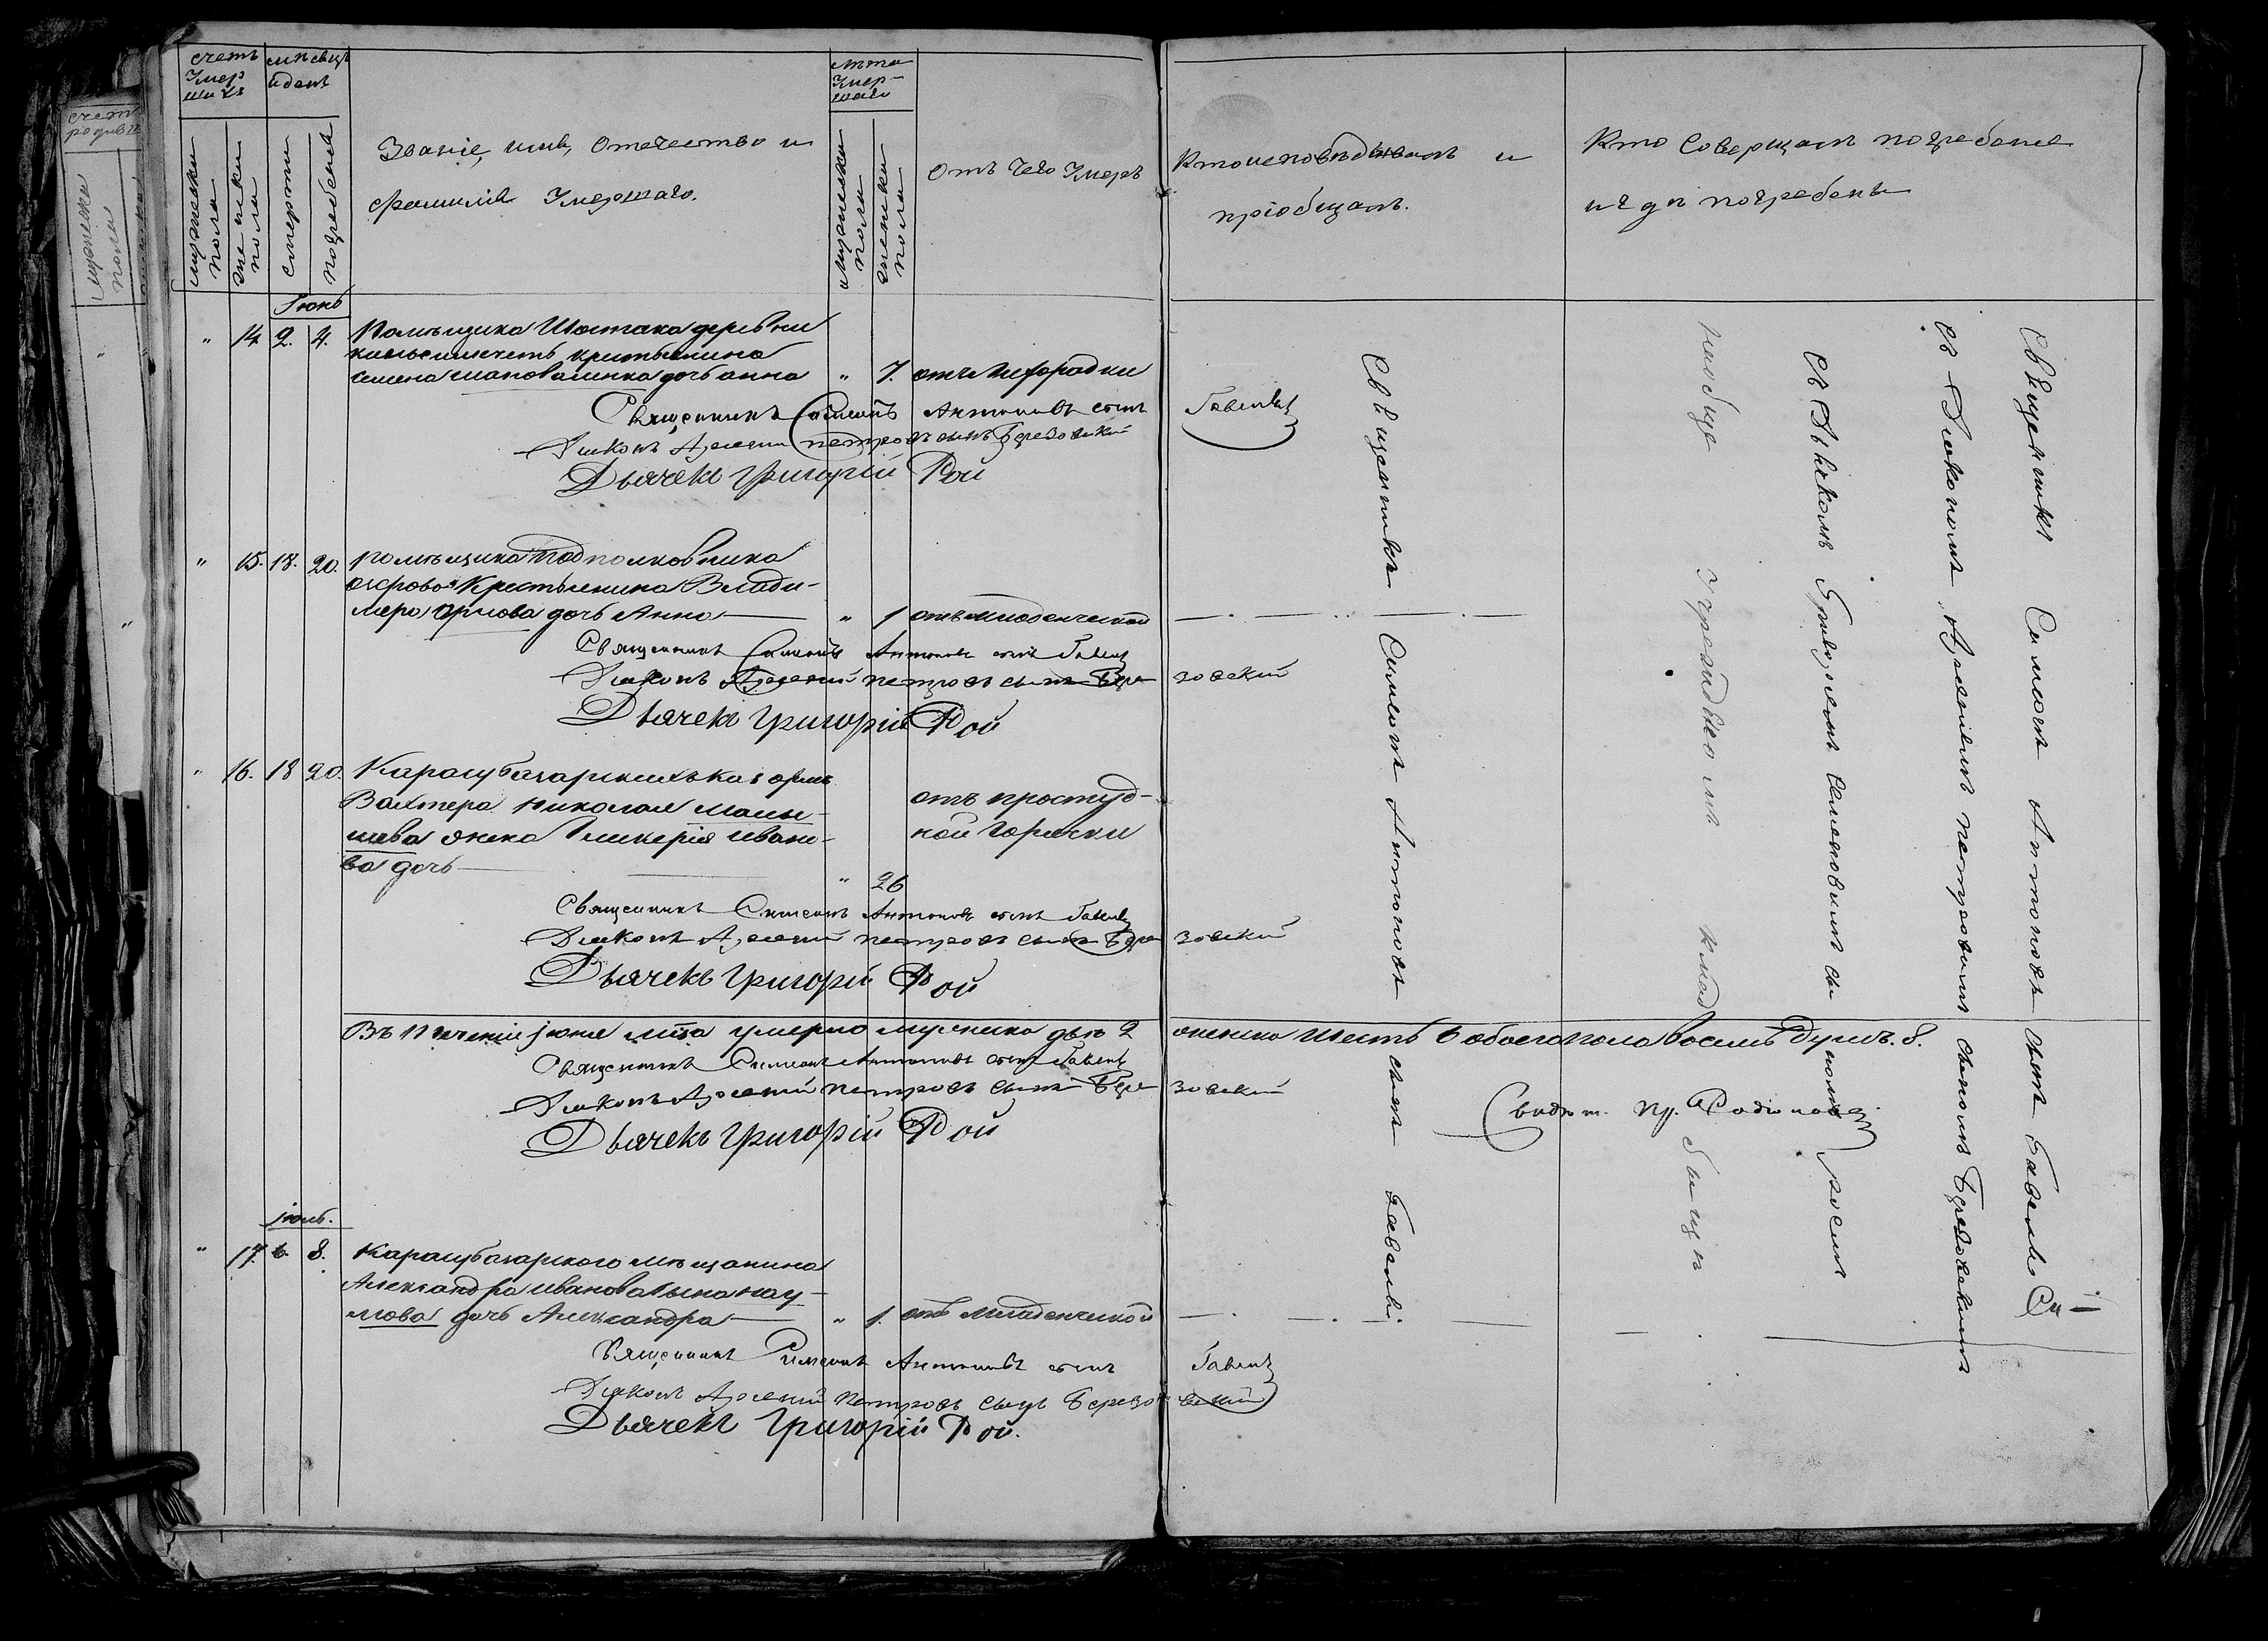 счетъ
Умер
шихъ
мѣсяцъ
и день
мужеска
пола
женска
пола
смерти
погребенія
Званіе, имя, Отечество и
фамилія Умершаго.
лѣта
Умер-
шаго
мужеска
пола
женска
пола
Отъ Чего Умеръ
Кто исповѣдывалъ и
пріобщалъ.
Кто Совершалъ погребеніе
и гдѣ погребены
счетъ
родив
мужеска
пола
Іюнь
" 14 2. 4. Помѣщика Шостака деревни
крестьянина
семена шаповаленка дочь анна " 7. отъ Лихорадки
Священникъ Симеонъ Антоновъ сынъ Бавенко
Діаконъ Арсеній петровъ сынъ Березовскій
Дьячекъ Григорій Рой
" 15. 18. 20. помѣщика подполковника
Крестьянина Влади-
мера дочь Анна " 1 отъ младенческой
Священникъ Симеонъ Антоновъ сынъ Бавенко
Діаконъ Арсеній петровъ сынъ Бере зовскій
Дьячекъ Григорій Рой
" 16. 18 20. Карасубазарскихъ
Вахтера николая малы-
шева жена Гликерія ивано-
ва дочь " 26
отъ простуд-
ной Горячки
Священникъ Симеонъ Антоновъ сынъ Бавенко
Діаконъ Арсеній петровъ сынъ Бере зовскій
Дьячекъ Григорій Рой
Въ теченіи іюня мѣса умерло мужеска двѣ 2 женска шесть 6 обоего пола восемь душъ. 8.
Священникъ Симеонъ Антоновъ сынъ Бавенко
Діаконъ Арсеній петровъ сынъ Бере зовскій
Дьячекъ Григорій Рой
іюль.
" 17. 6. 8. Карасубазарского мѣщанина
Александра иванова сына нау-
мова дочь Александра " 1. отъ младенческой
Священникъ Симеонъ Антоновъ сынъ Бавенко
Діаконъ Арсеній петровъ сынъ Березо вскій
Дьячекъ Григорій Рой.
Священникъ Симеонъ Антоновъ сынъ Бавенко.
Священникъ Симеонъ Антоновъ сынъ Бавенко Съ
съ Діакономъ Арсеніемъ петровымъ сыномъ Березовскимъ
съ Дьячкомъ Григоріемъ Симеоновымъ сы номъ Роемъ
на обще учрежденномъ клад бищѣ